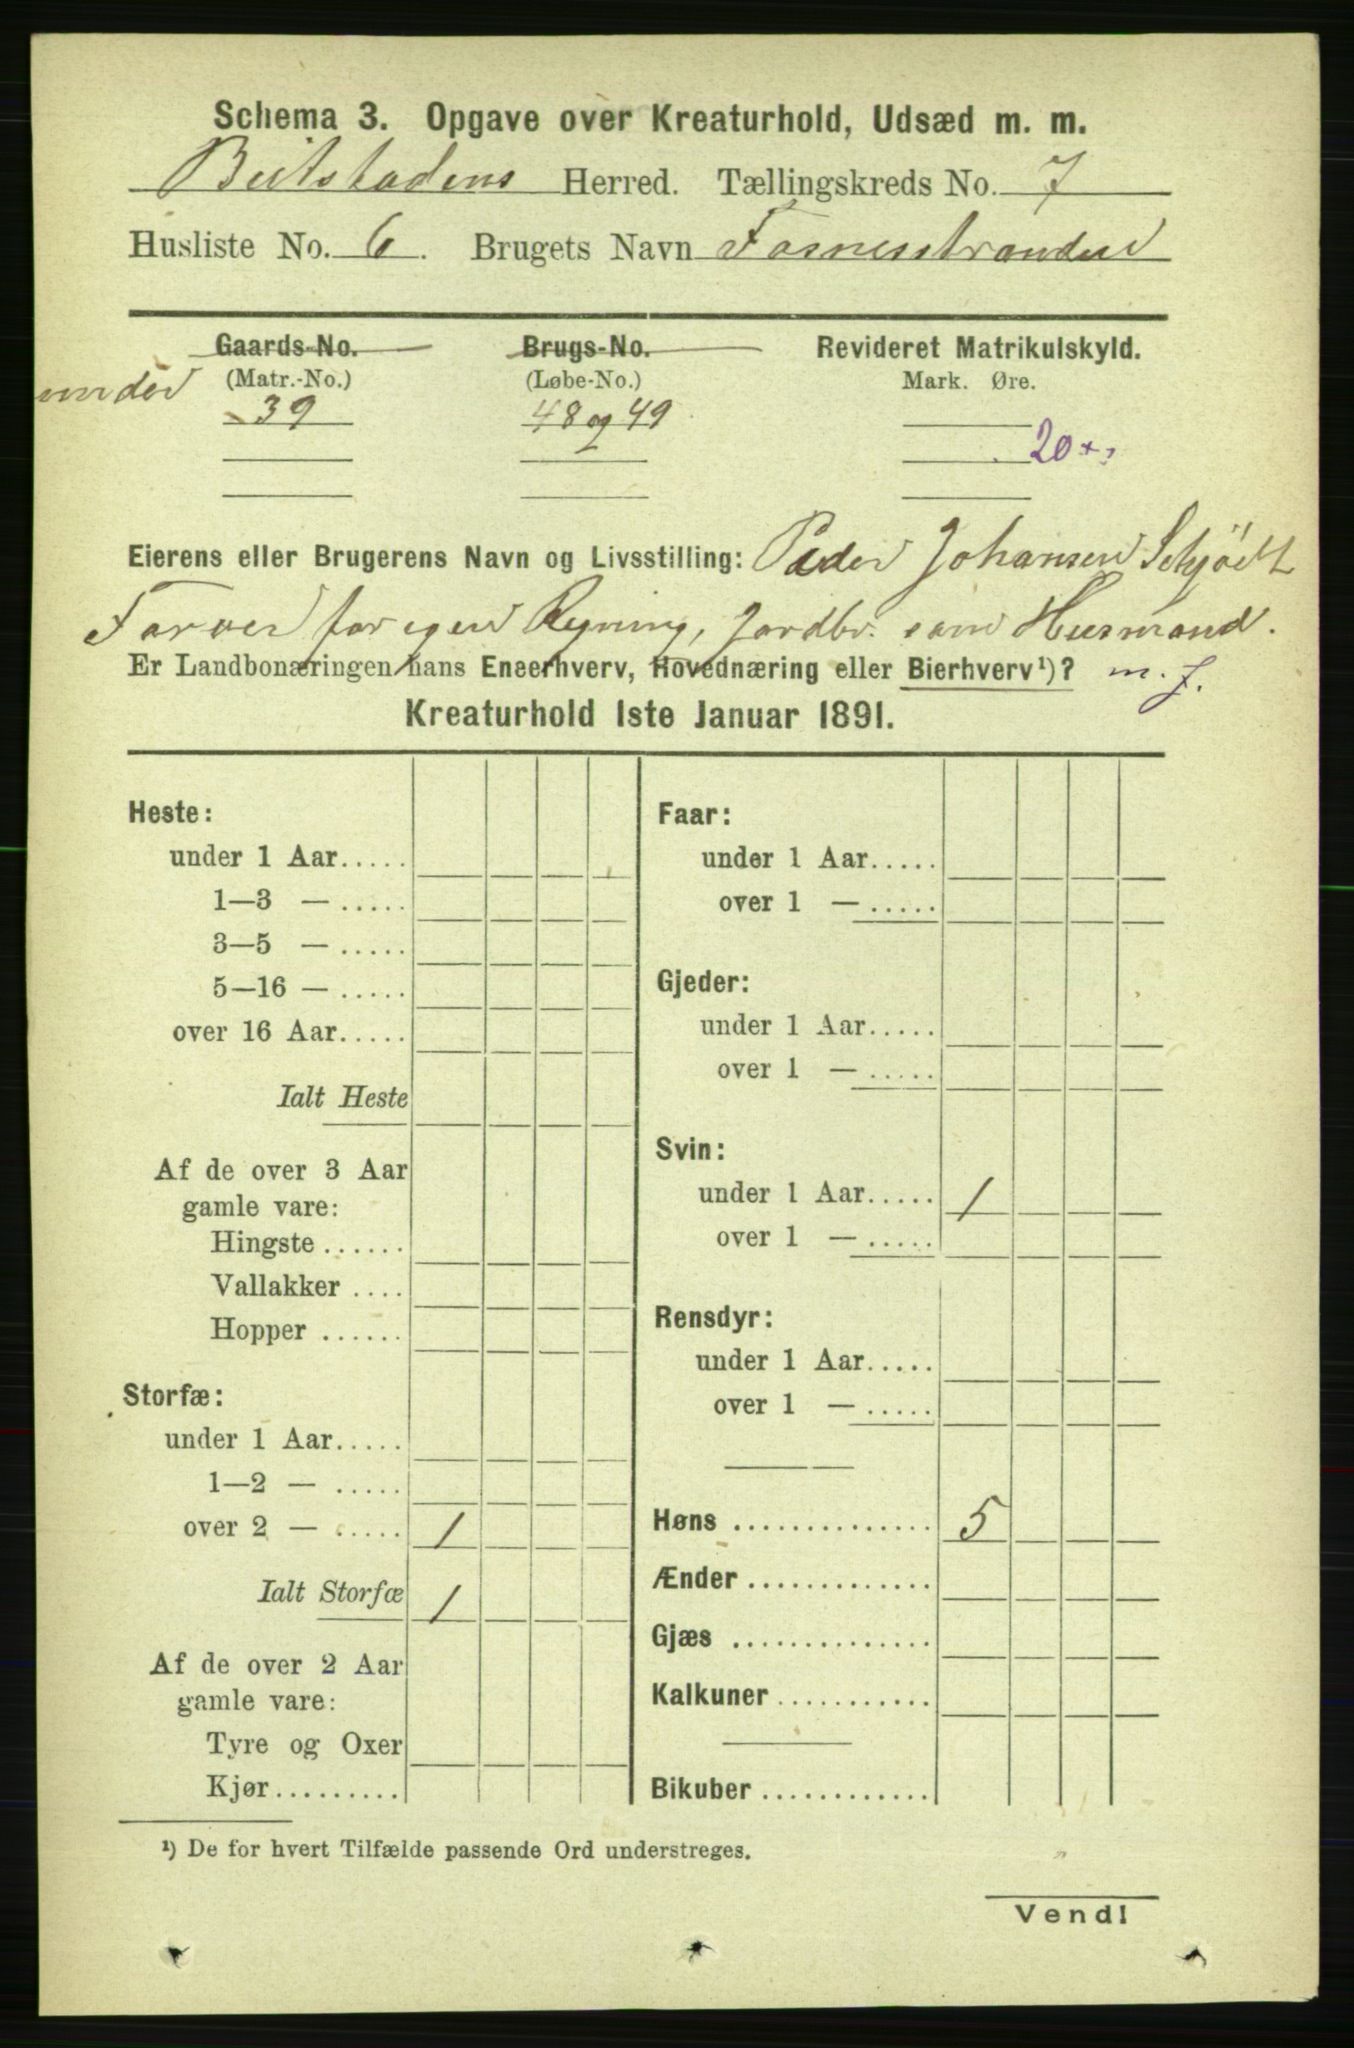 Schema 3. Opgave over Kreaturhold, Udsæd m. m.
Beitstadens Herred. Tællingskreds No. 7
Husliste No. 6. Brugets Navn Fosnesstranden
Gaards-No. Brugs-No. Revideret Matrikulskyld.
under (Matr.-No.) (Løbe-No.) Mark. Øre.
39 48 og 49
20
Eierens eller Brugerens Navn og Livsstilling: Peder Johansen Schjödt
Farver for egen Regning, Jordbr. som Husmand.
Er Landbonæringen hans Eneerhverv, Hovednæring eller Bierhverv¹)? m. J.
Kreaturhold 1ste Januar 1891.
Heste:
under 1 Aar.....
1—3 — .....
3—5 — .....
5—16 — .....
over 16 Aar.....
Ialt Heste
Af de over 3 Aar
gamle vare:
Hingste ......
Vallakker ....
Hopper ......
Storfæ:
under 1 Aar.....
1—2 — .....
over 2 — ..... 1
Ialt Storfæ 1
Af de over 2 Aar
gamle vare:
Tyre og Oxer
Kjør.........
Faar:
under 1 Aar.....
over 1 — .....
Gjeder:
under 1 Aar.....
over 1 — .....
Svin:
under 1 Aar..... 1
over 1 — .....
Rensdyr:
under 1 Aar.....
over 1 — .....
Høns .............. 5
Ænder .............
Gjæs ..............
Kalkuner ...........
Bikuber ............
¹) De for hvert Tilfælde passende Ord understreges.
Vend!